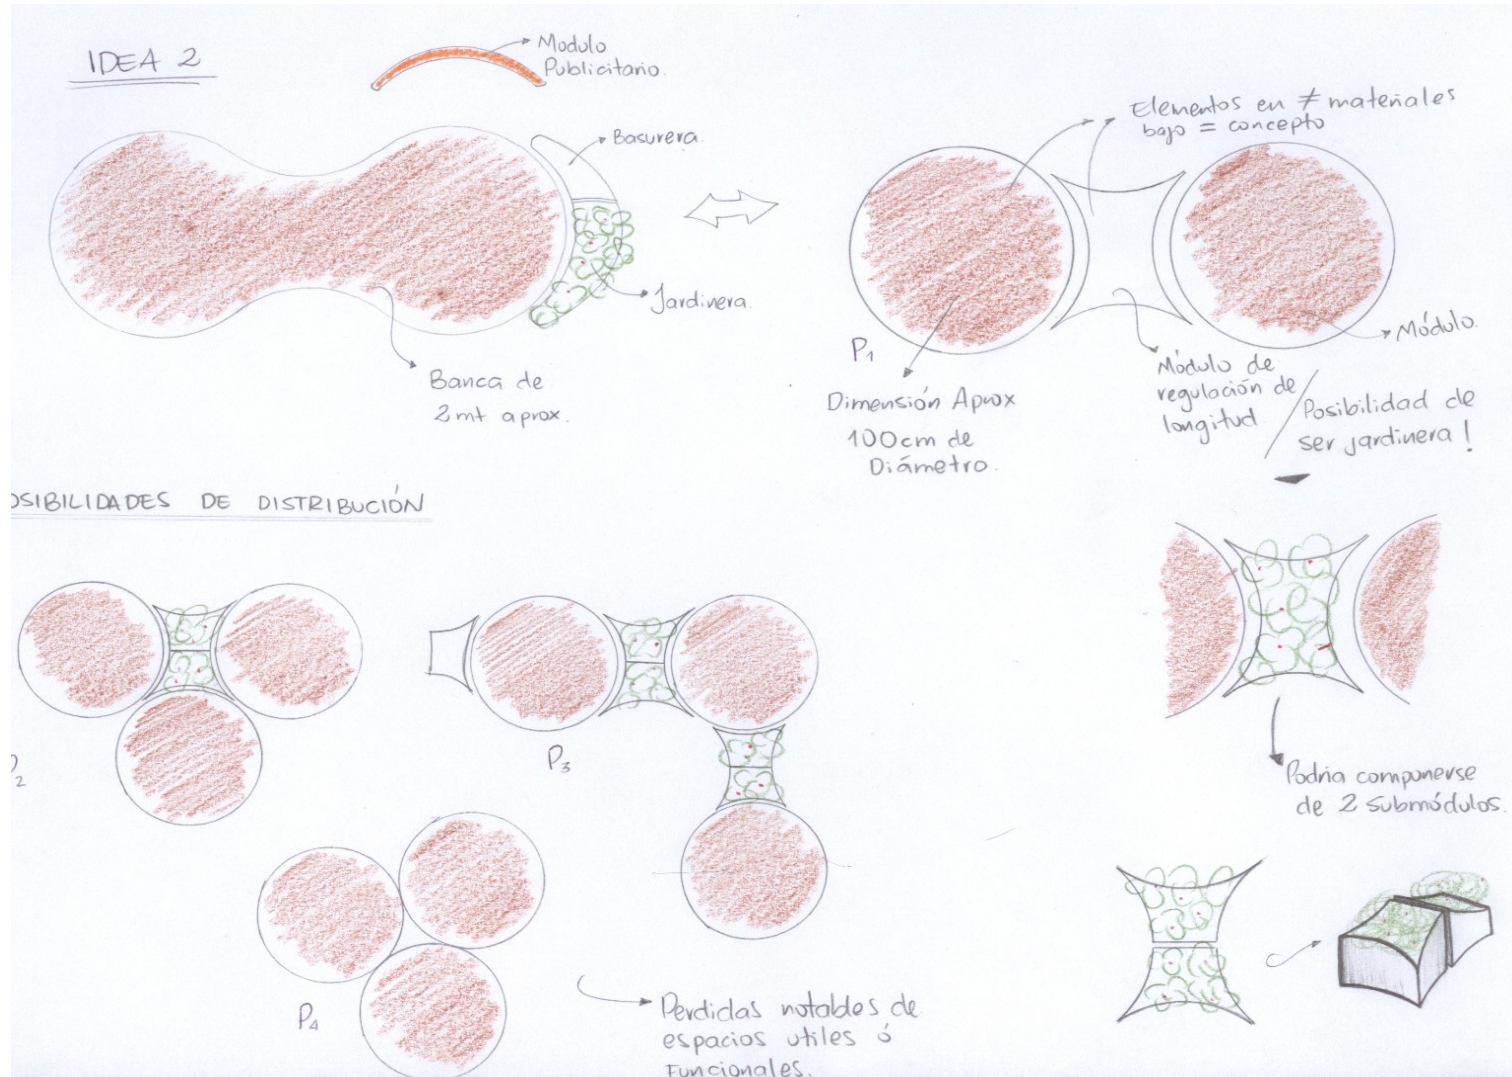 IDEA 2
Modulo
Publicitario.
Basurera.
Jardinera.
Banca de
2mt aprox.
Elementos en ≠ materiales
bajo = concepto
P1
Dimensión Aprox
100cm de
Diámetro.
Módulo de
regulación de
longitud
/
Posibilidad de
ser jardinera!
Módulo.
OSIBILIDADES DE DISTRIBUCIÓN
P2
P3
P4
Perdidas notables de
espacios utiles ó
Funcionales.
Podria componerse
de 2 submódulos.